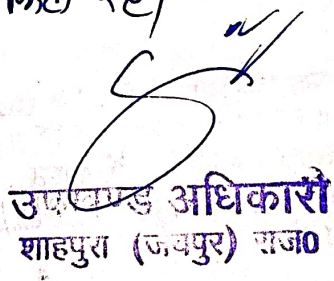 उपखण्ड अधिकारी
शाहपुरा (जयपुर) राज0